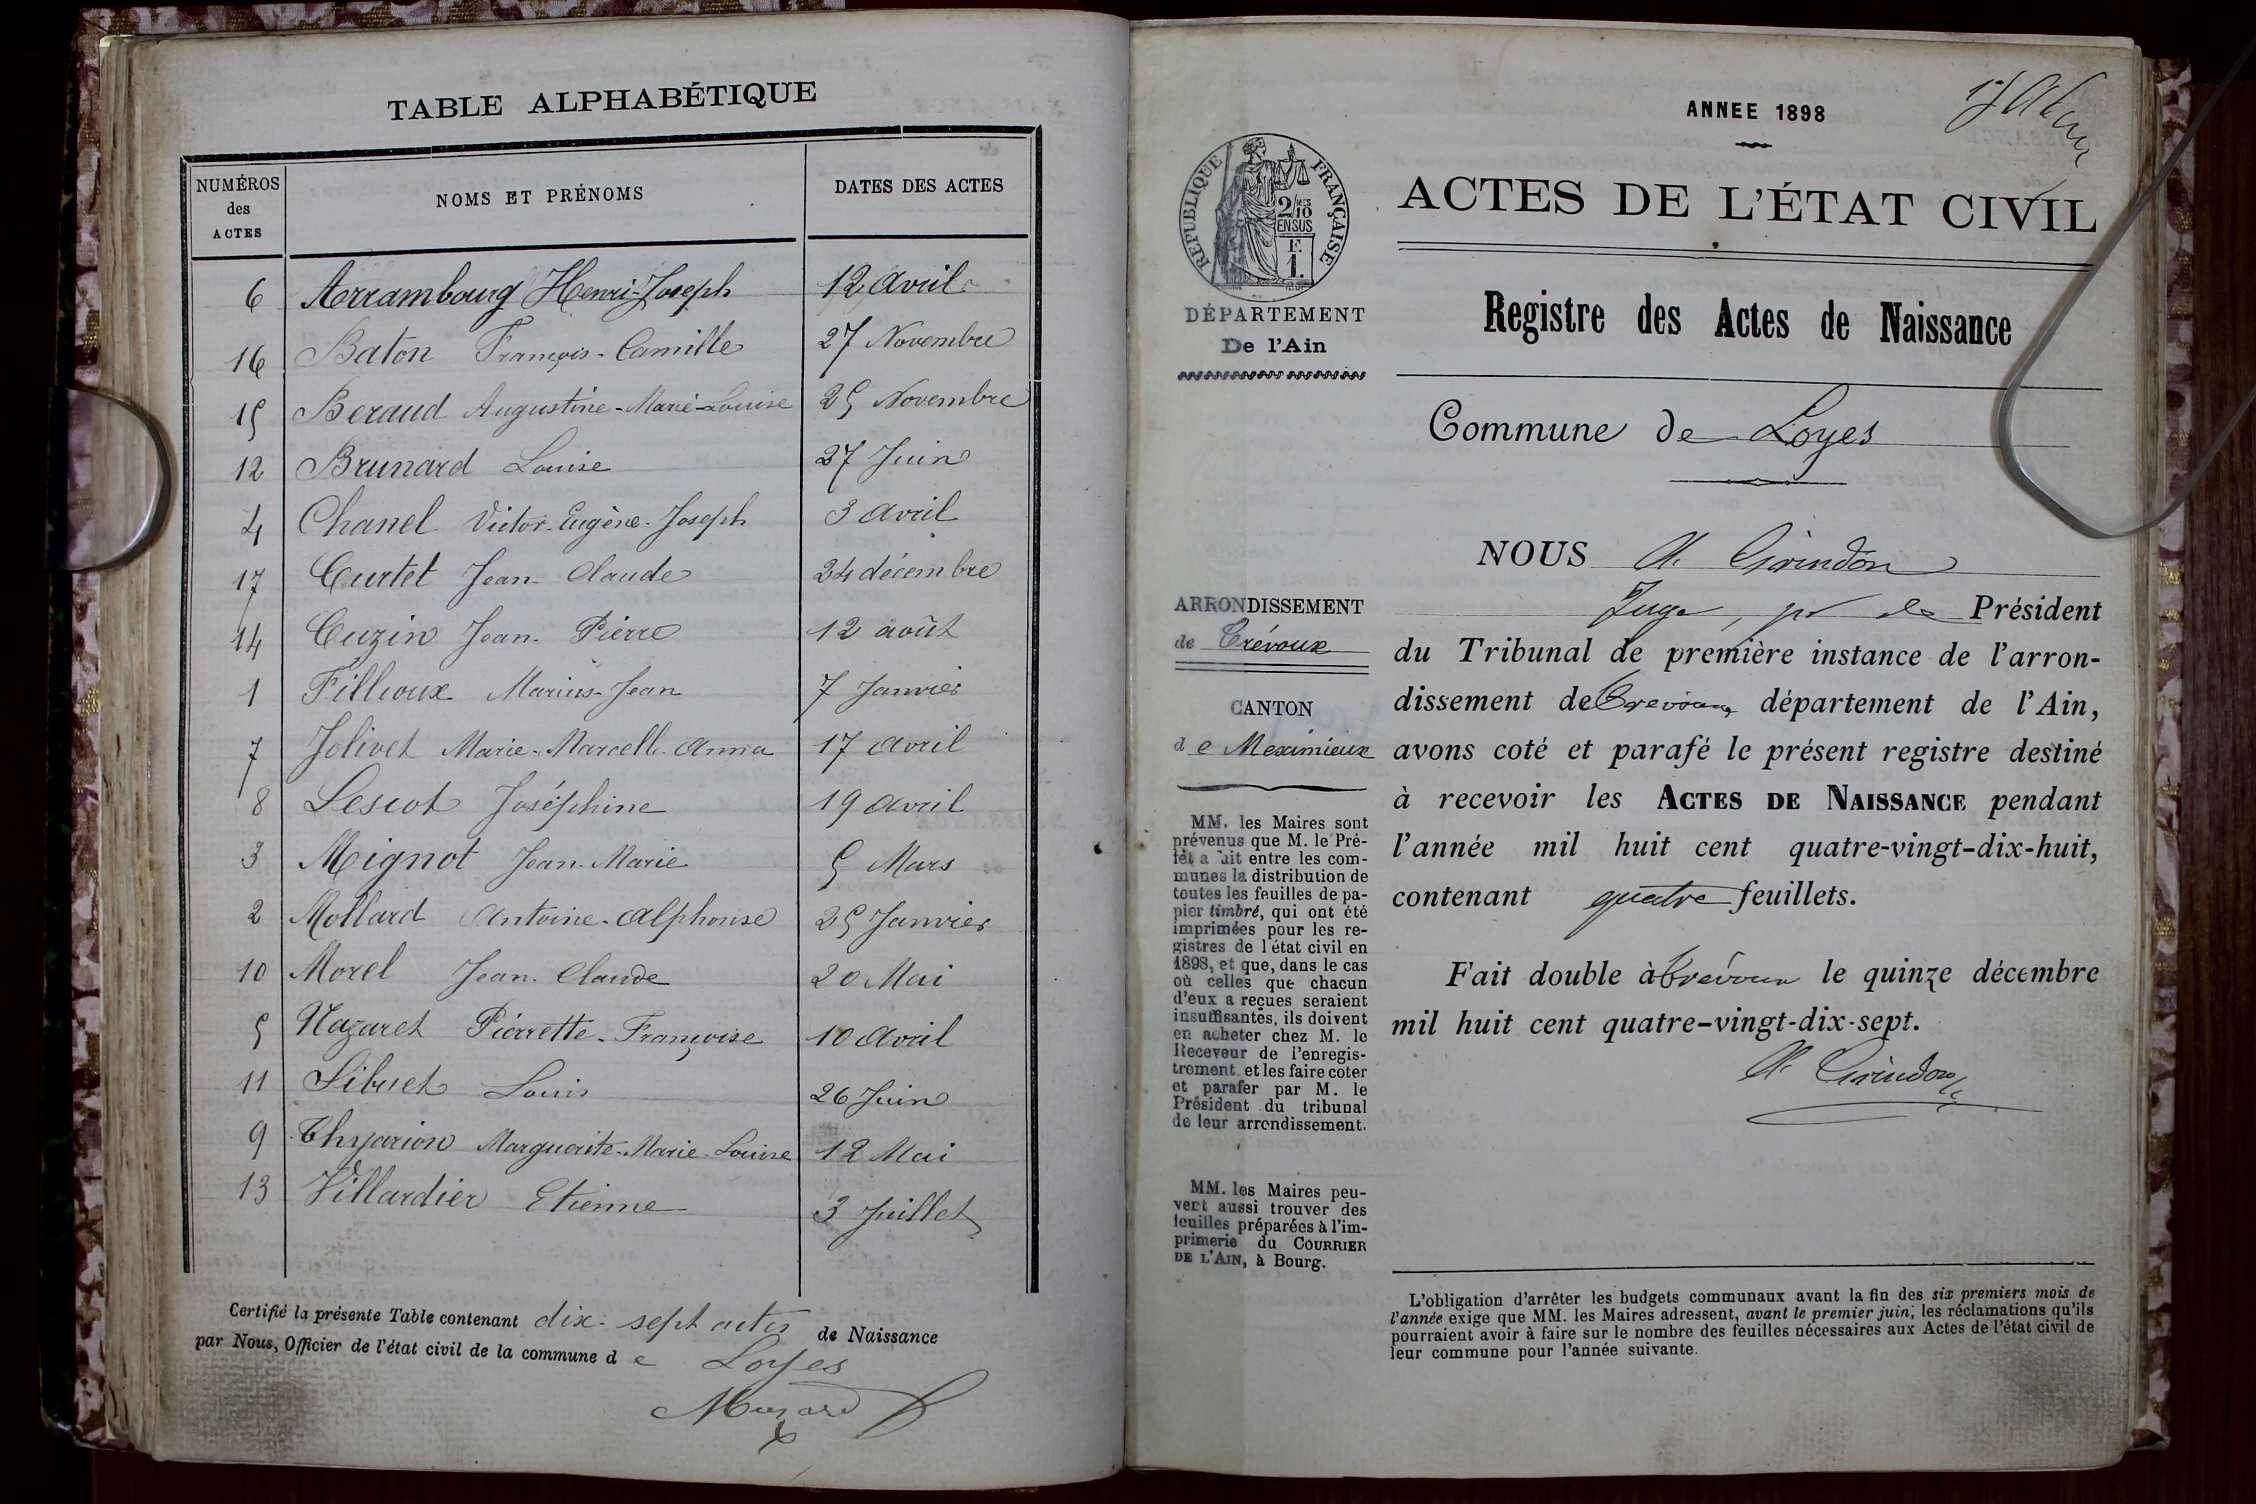 TABLE ALPHABÉTIQUE
NUMÉROS des ACTES
NOMS ET PRÉNOMS
DATES DES ACTES
6 Arrambourg Henri-Joseph 12 Avril
16 Baton François-Camille 27 Novembre
15 Beraud Augustine-Marie-Louise 25 Novembre
12 Brunard Louise 27 Juin
4 Chanel Victor-Eugène-Joseph 3 Avril
17 Curtet Jean-Claude 24 décembre
14 Cuzin Jean-Pierre 12 août
1 Fillioux Marius-Jean 7 Janvier
7 Jolivet Marie-Marcelle-Anna 17 Avril
8 Lescot Joséphine 19 Avril
3 Mignot Jean-Marie 5 Mars
2 Mollard Antoine-Alphonse 25 Janvier
10 Morel Jean-Claude 20 Mai
5 Nazaret Pierrette-Françoise 10 Avril
11 Sibuet Louis 26 Juin
9 Marguerite-Marie-Louise 12 Mai
13 Villardier Etienne 3 Juillet
Certifié la présente Table contenant dix-sept actes de Naissance
par Nous, Officier de l'état civil de la commune de Loyes
ANNEE 1898
ACTES DE L'ÉTAT CIVIL
Registre des Actes de Naissance
Commune de Loyes
RÉPUBLIQUE FRANÇAISE
2/10 MES
EN SUS
F.
1.
DÉPARTEMENT
De l'Ain
ARRONDISSEMENT
de Trévoux
CANTON
de Meximieux
MM. les Maires sont
prévenus que M. le Pré-
fet a fait entre les com-
munes la distribution de
toutes les feuilles de pa-
pier timbré, qui ont été
imprimées pour les re-
gistres de l'état civil en
1898, et que, dans le cas
où celles que chacun
d'eux a reçues seraient
insuffisantes, ils doivent
en acheter chez M. le
Receveur de l'enregis-
trement et les faire coter
et parafer par M. le
Président du tribunal
de leur arrondissement.
MM. les Maires peu-
vent aussi trouver des
feuilles préparées à l'im-
primerie du COURRIER
DE L'AIN, à Bourg.
NOUS A. Girindon
Juge, pr le Président
du Tribunal de première instance de l'arron-
dissement de Trévoux, département de l'Ain,
avons coté et parafé le présent registre destiné
à recevoir les ACTES DE NAISSANCE pendant
l'année mil huit cent quatre-vingt-dix-huit,
contenant quatre feuillets.
Fait double à Trévoux le quinze décembre
mil huit cent quatre-vingt-dix-sept.
A. Girindon
L'obligation d'arrêter les budgets communaux avant la fin des six premiers mois de
l'année exige que MM. les Maires adressent, avant le premier juin, les réclamations qu'ils
pourraient avoir à faire sur le nombre des feuilles nécessaires aux Actes de l'état civil de
leur commune pour l'année suivante.